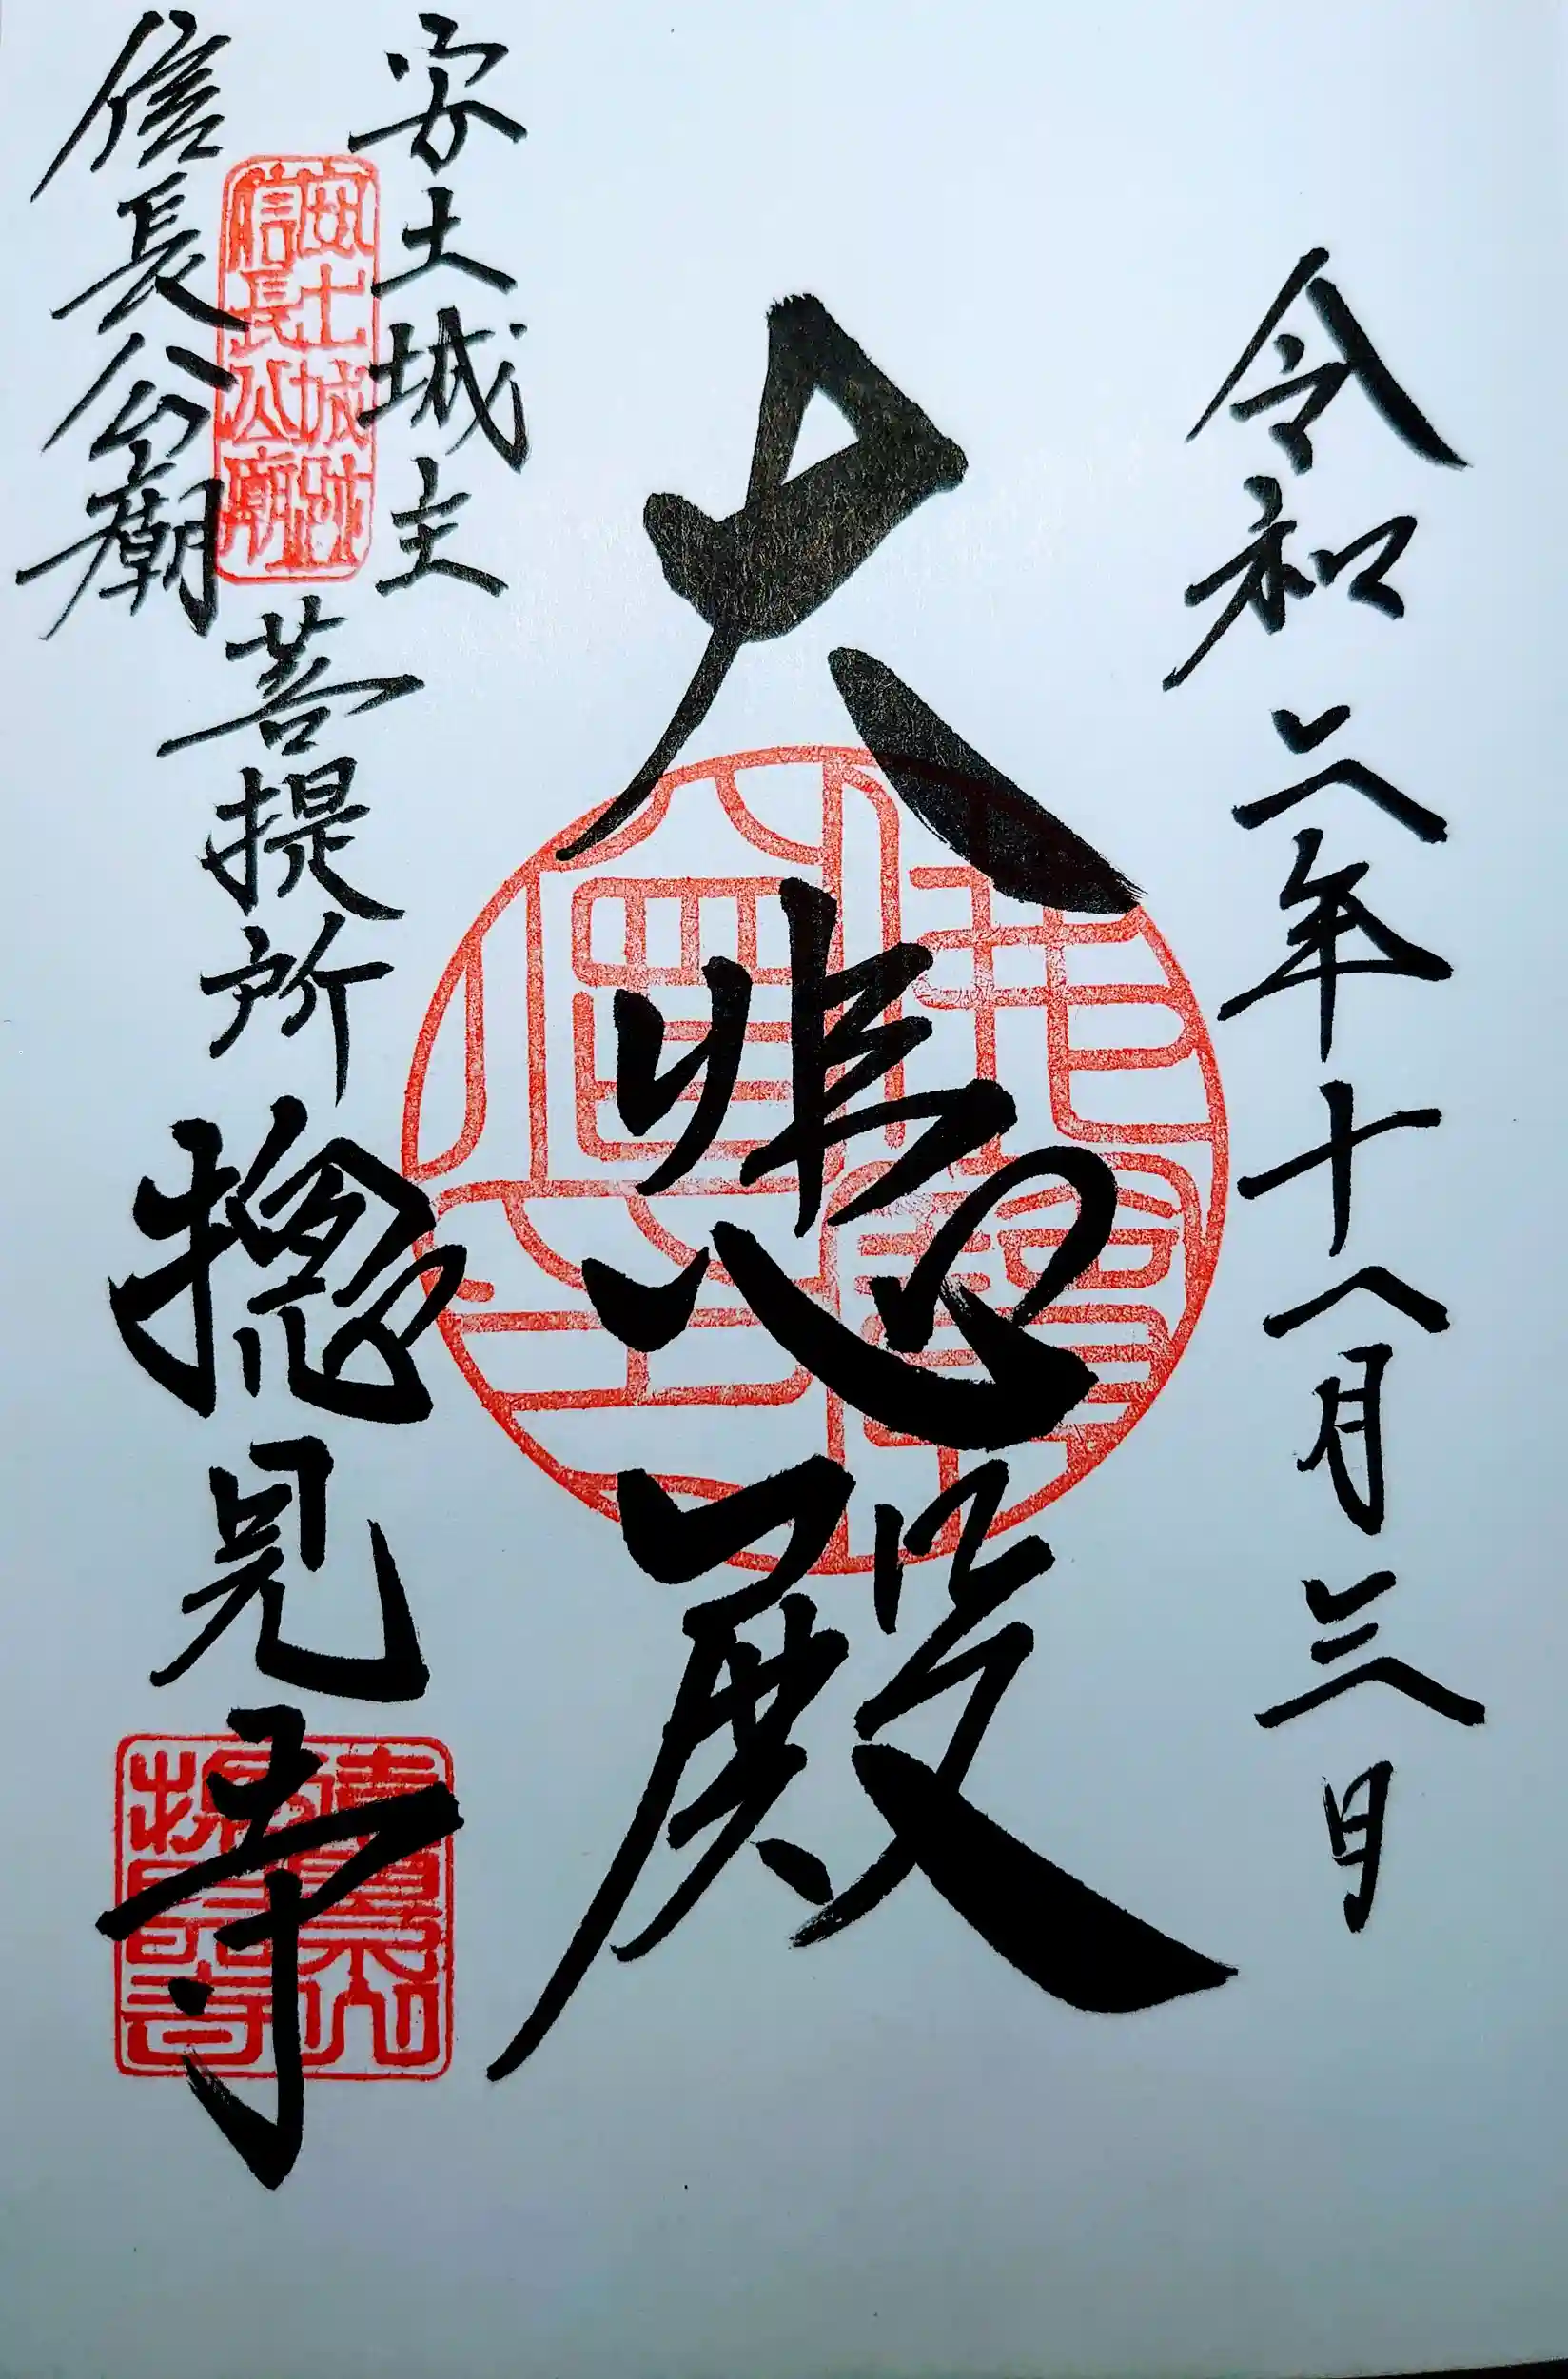 令和二年十一月三日
大悲殿
安土城主
信長公廟
菩提所
摠見寺
安土城
信長公廟
遠景山
摠見寺